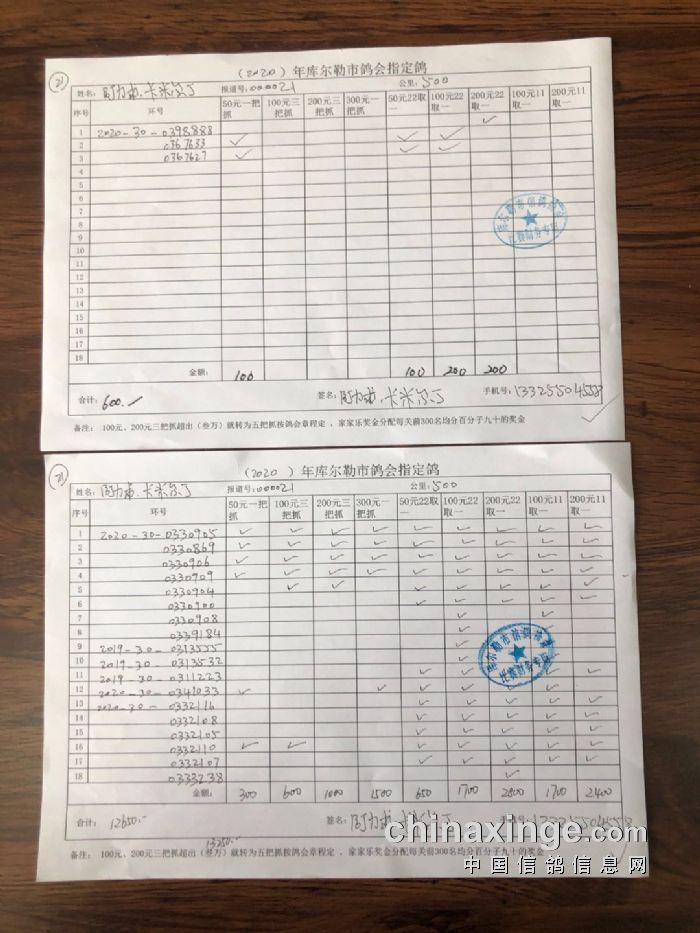 21
（2020）年库尔勒市鸽会指定鸽
姓名： 报道号：000021 公里：500
序号 环号 50元一把抓 100元三把抓 200元三把抓 300元一把抓 50元22取一 100元22取一 200元22取一 100元11取一 200元11取一
✓
1 2020-30-0398888
2 0367633 ✓ ✓ ✓
3 0367627 ✓ ✓ ✓
4
5
6
7
8
9
10
11
12
13
14
15
16
17
18
金额： 100 100 200 200
合计： 600.- 签名： 手机号：
备注： 100元、200元三把抓超出（叁万）就转为五把抓按鸽会章程定，家家乐奖金分配每关前300名均分百分子九十的奖金
21
（2020）年库尔勒市鸽会指定鸽
姓名： 报道号：000021 公里：500
序号 环号 50元一把抓 100元三把抓 200元三把抓 300元一把抓 50元22取一 100元22取一 200元22取一 100元11取一 200元11取一
1 2020-30-0330905 ✓ ✓ ✓ ✓ ✓ ✓ ✓ ✓ ✓
2 0330869 ✓ ✓ ✓ ✓ ✓ ✓ ✓ ✓ ✓
3 0330906 ✓ ✓ ✓ ✓ ✓ ✓ ✓ ✓ ✓
4 0330909 ✓ ✓ ✓ ✓ ✓ ✓ ✓ ✓ ✓
5 0330904 ✓ ✓ ✓ ✓ ✓ ✓ ✓
6 0330900 ✓ ✓ ✓ ✓ ✓
7 0330908 ✓ ✓
8 0339184 ✓
9 2019-30-0313555
10 2019-30-0313532
11 2019-30-0311223
12 2020-30-0341033
13 2020-30-0332116 ✓ ✓ ✓ ✓ ✓
14 0332108
15 0332105
16 0332110
17 0332107
18 0333238 ✓
金额： 300 600 1000 1500 650 1700 2800 1700 2400
合计： 12650.- 签名：
13250.-
备注： 100元、200元三把抓超出（叁万）就转为五把抓按鸽会章程定，家家乐奖金分配每关前300名均分百分子九十的奖金
chinaxinge.com
中国信鸽信息网